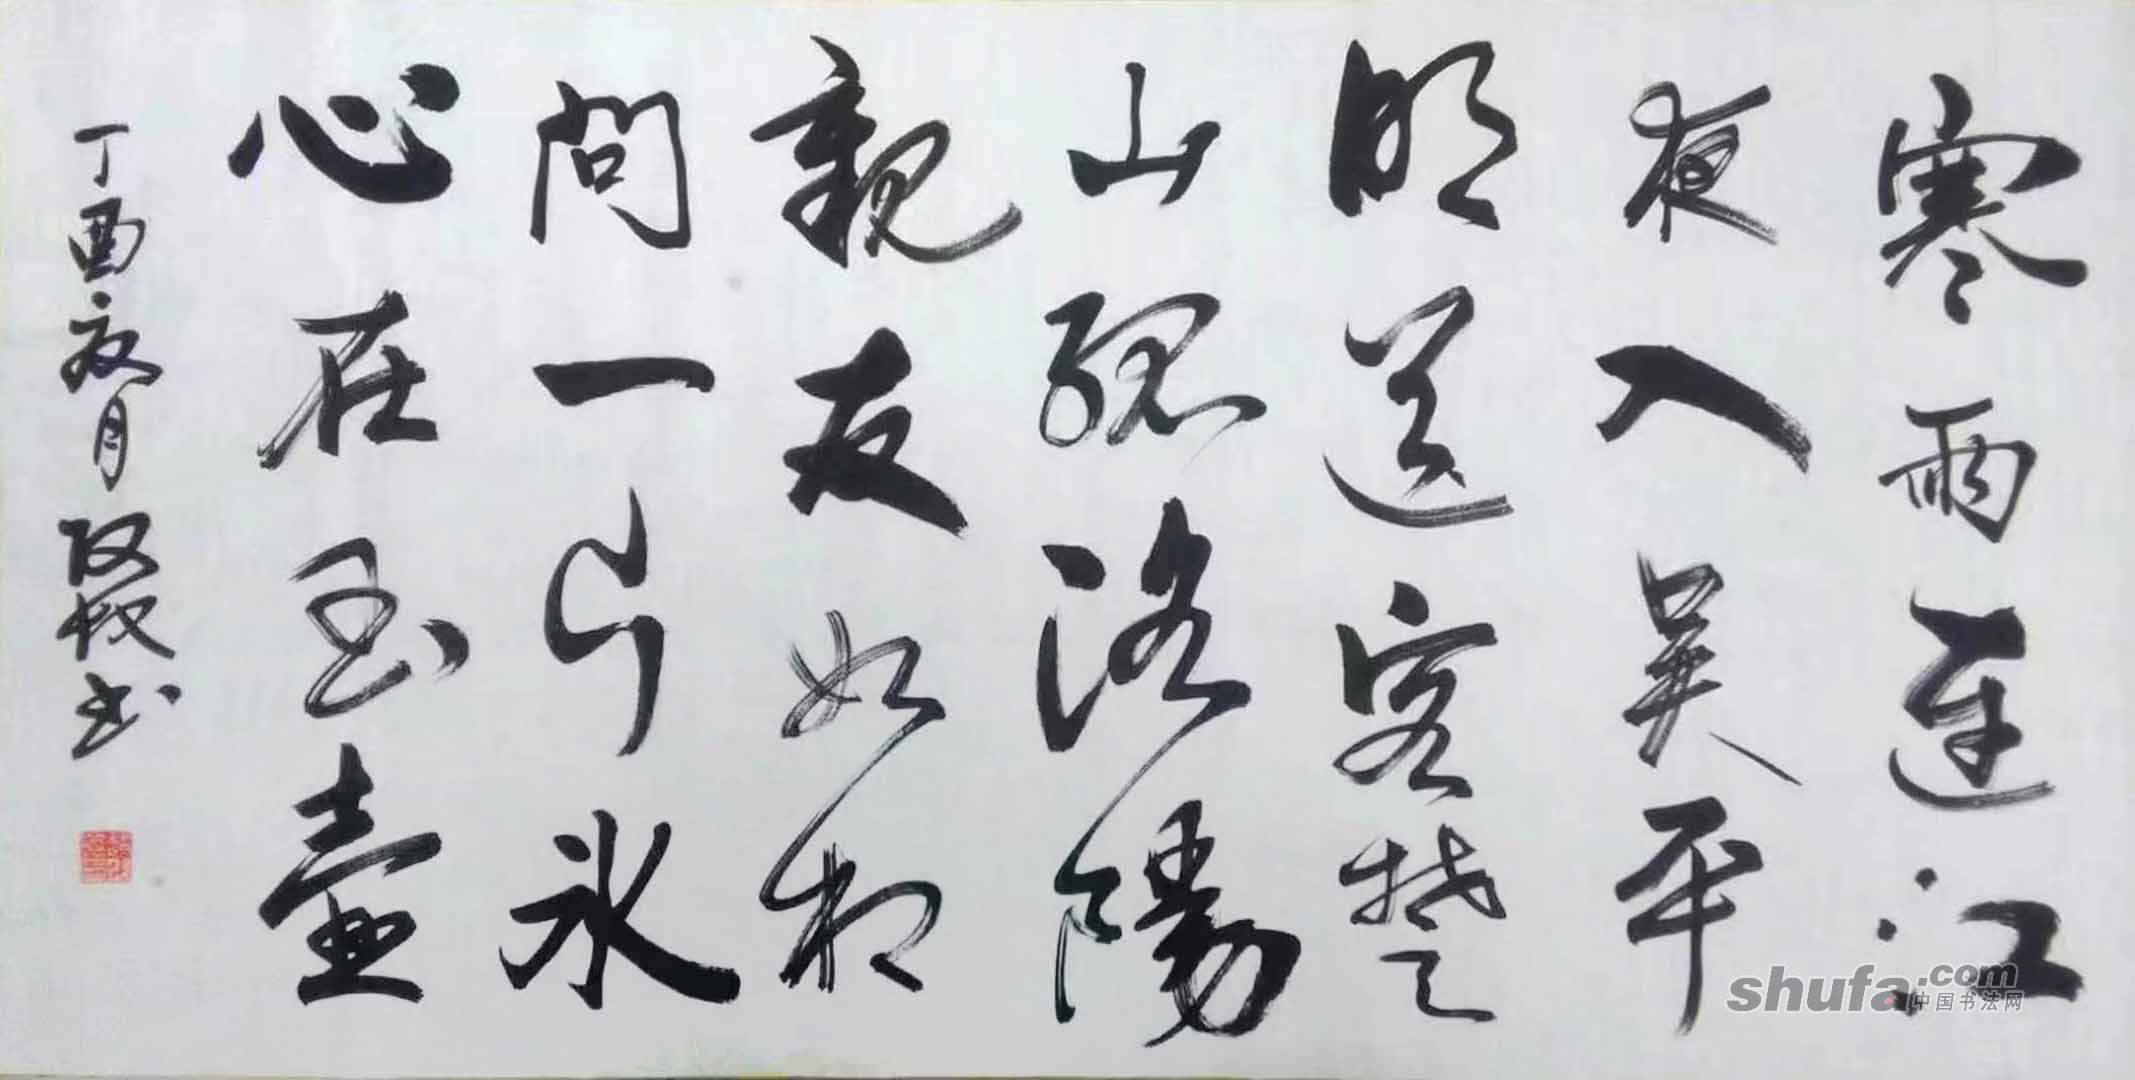 寒雨连江
夜入吴平
明送客楚
山孤洛陽
親友如相
问一片冰
心在玉壶
丁酉夏月
书
shufa.com
中国书法网